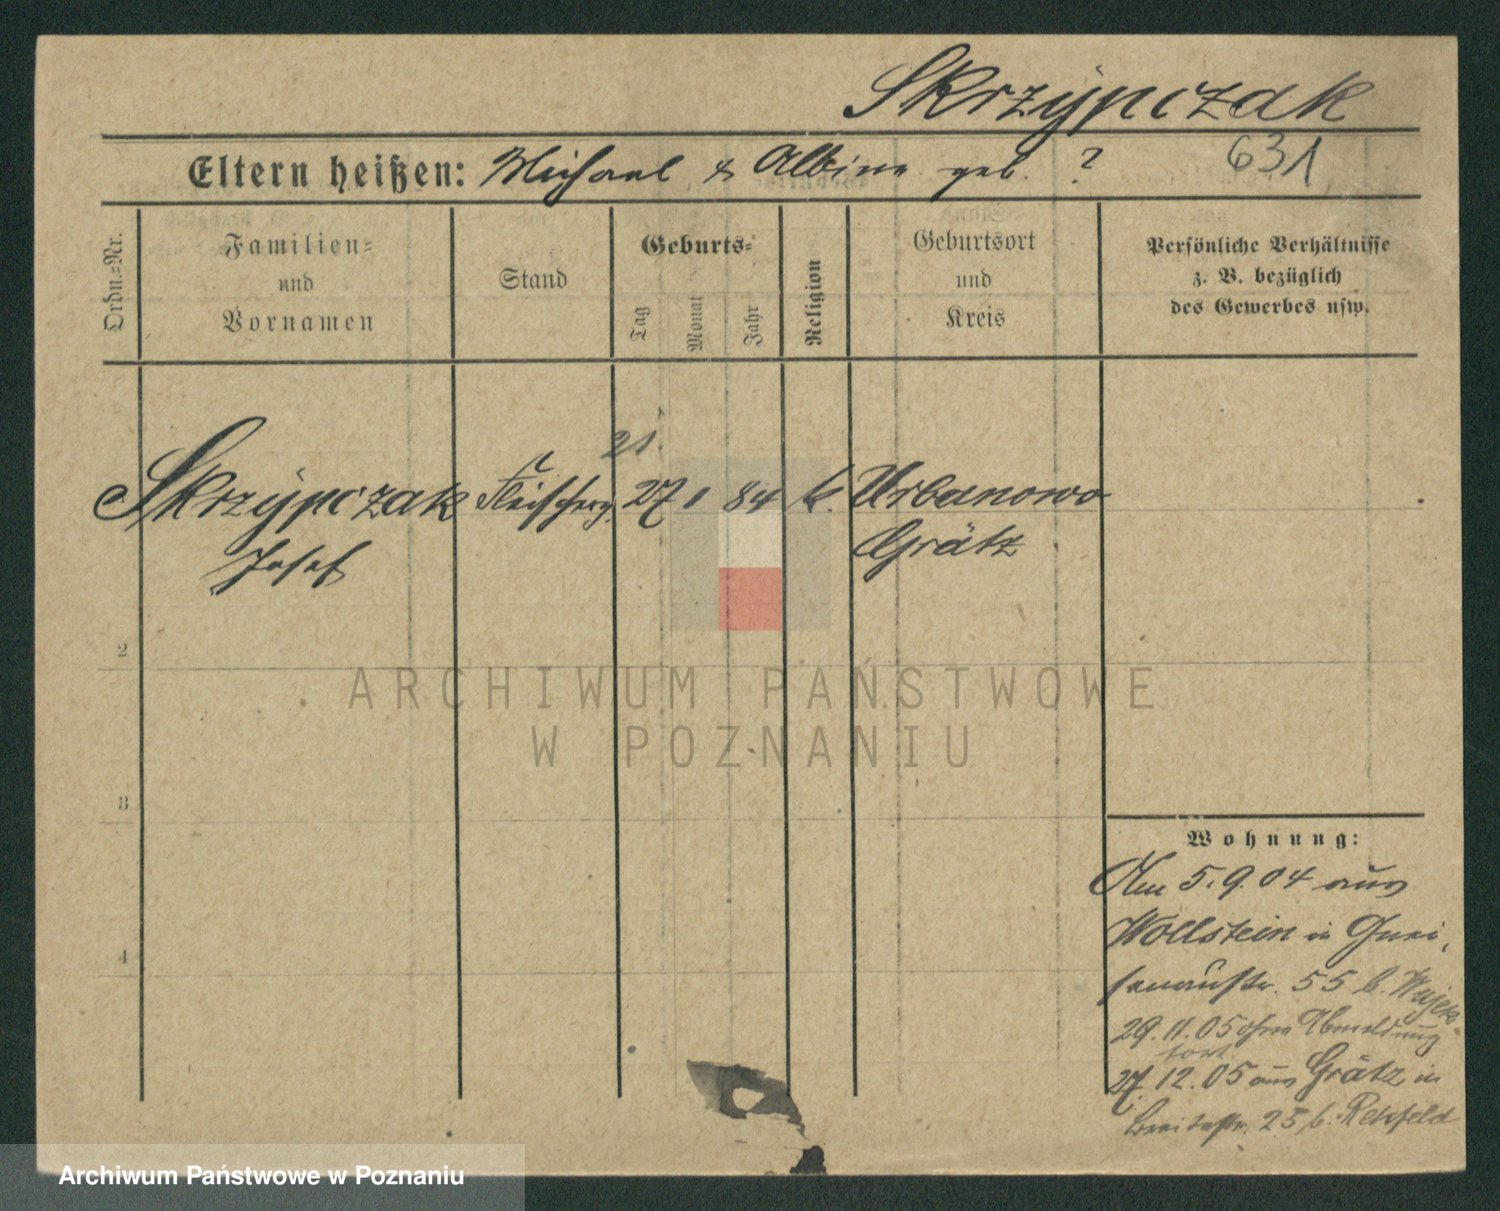 Skrzypczak
Eltern heißen: Michael & Albine geb. ? 631
Ordn.=Nr.
Familien=
und
Vornamen
Stand
Geburts=
Tag
Monat
Jahr
Religion
Geburtsort
und
Kreis
Persönliche Verhältnisse
z. B. bezüglich
des Gewerbes usw.
21.
Skrzypczak Fleischerg. 27 1 84 k. Urbanowo
Josef Grätz
2
ARCHIWUM PAŃSTWOWE
W POZNANIU
3
Wohnung:
Am 5.9.04 aus
Wollstein in Gnei
senaustr. 55 b. Wajek
29.11.05 ohne Abmeldung
fort
27.12.05 aus Grätz in
Breitestr. 25 b. Rehfeld
4
Archiwum Państwowe w Poznaniu